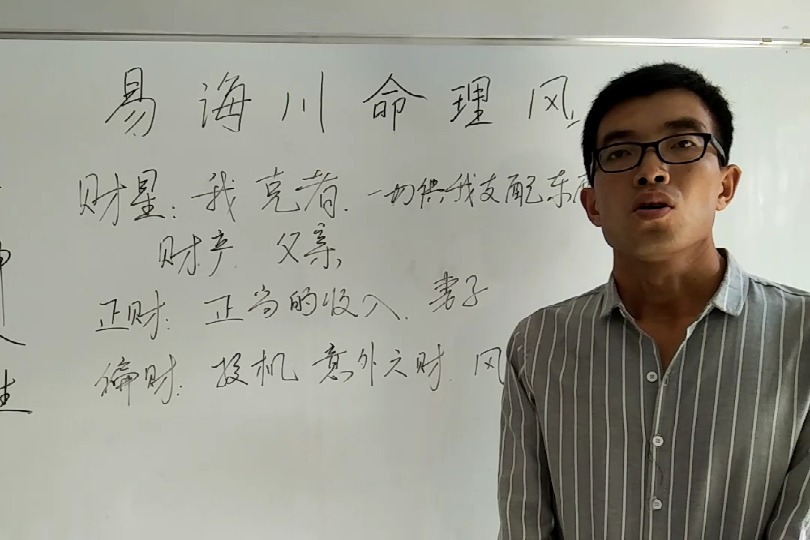 易海川命理风
财星：我克者.一切供我支配东西
财产 父亲
正财：正当的收入.妻子
偏财：投机 意外之财.风
生